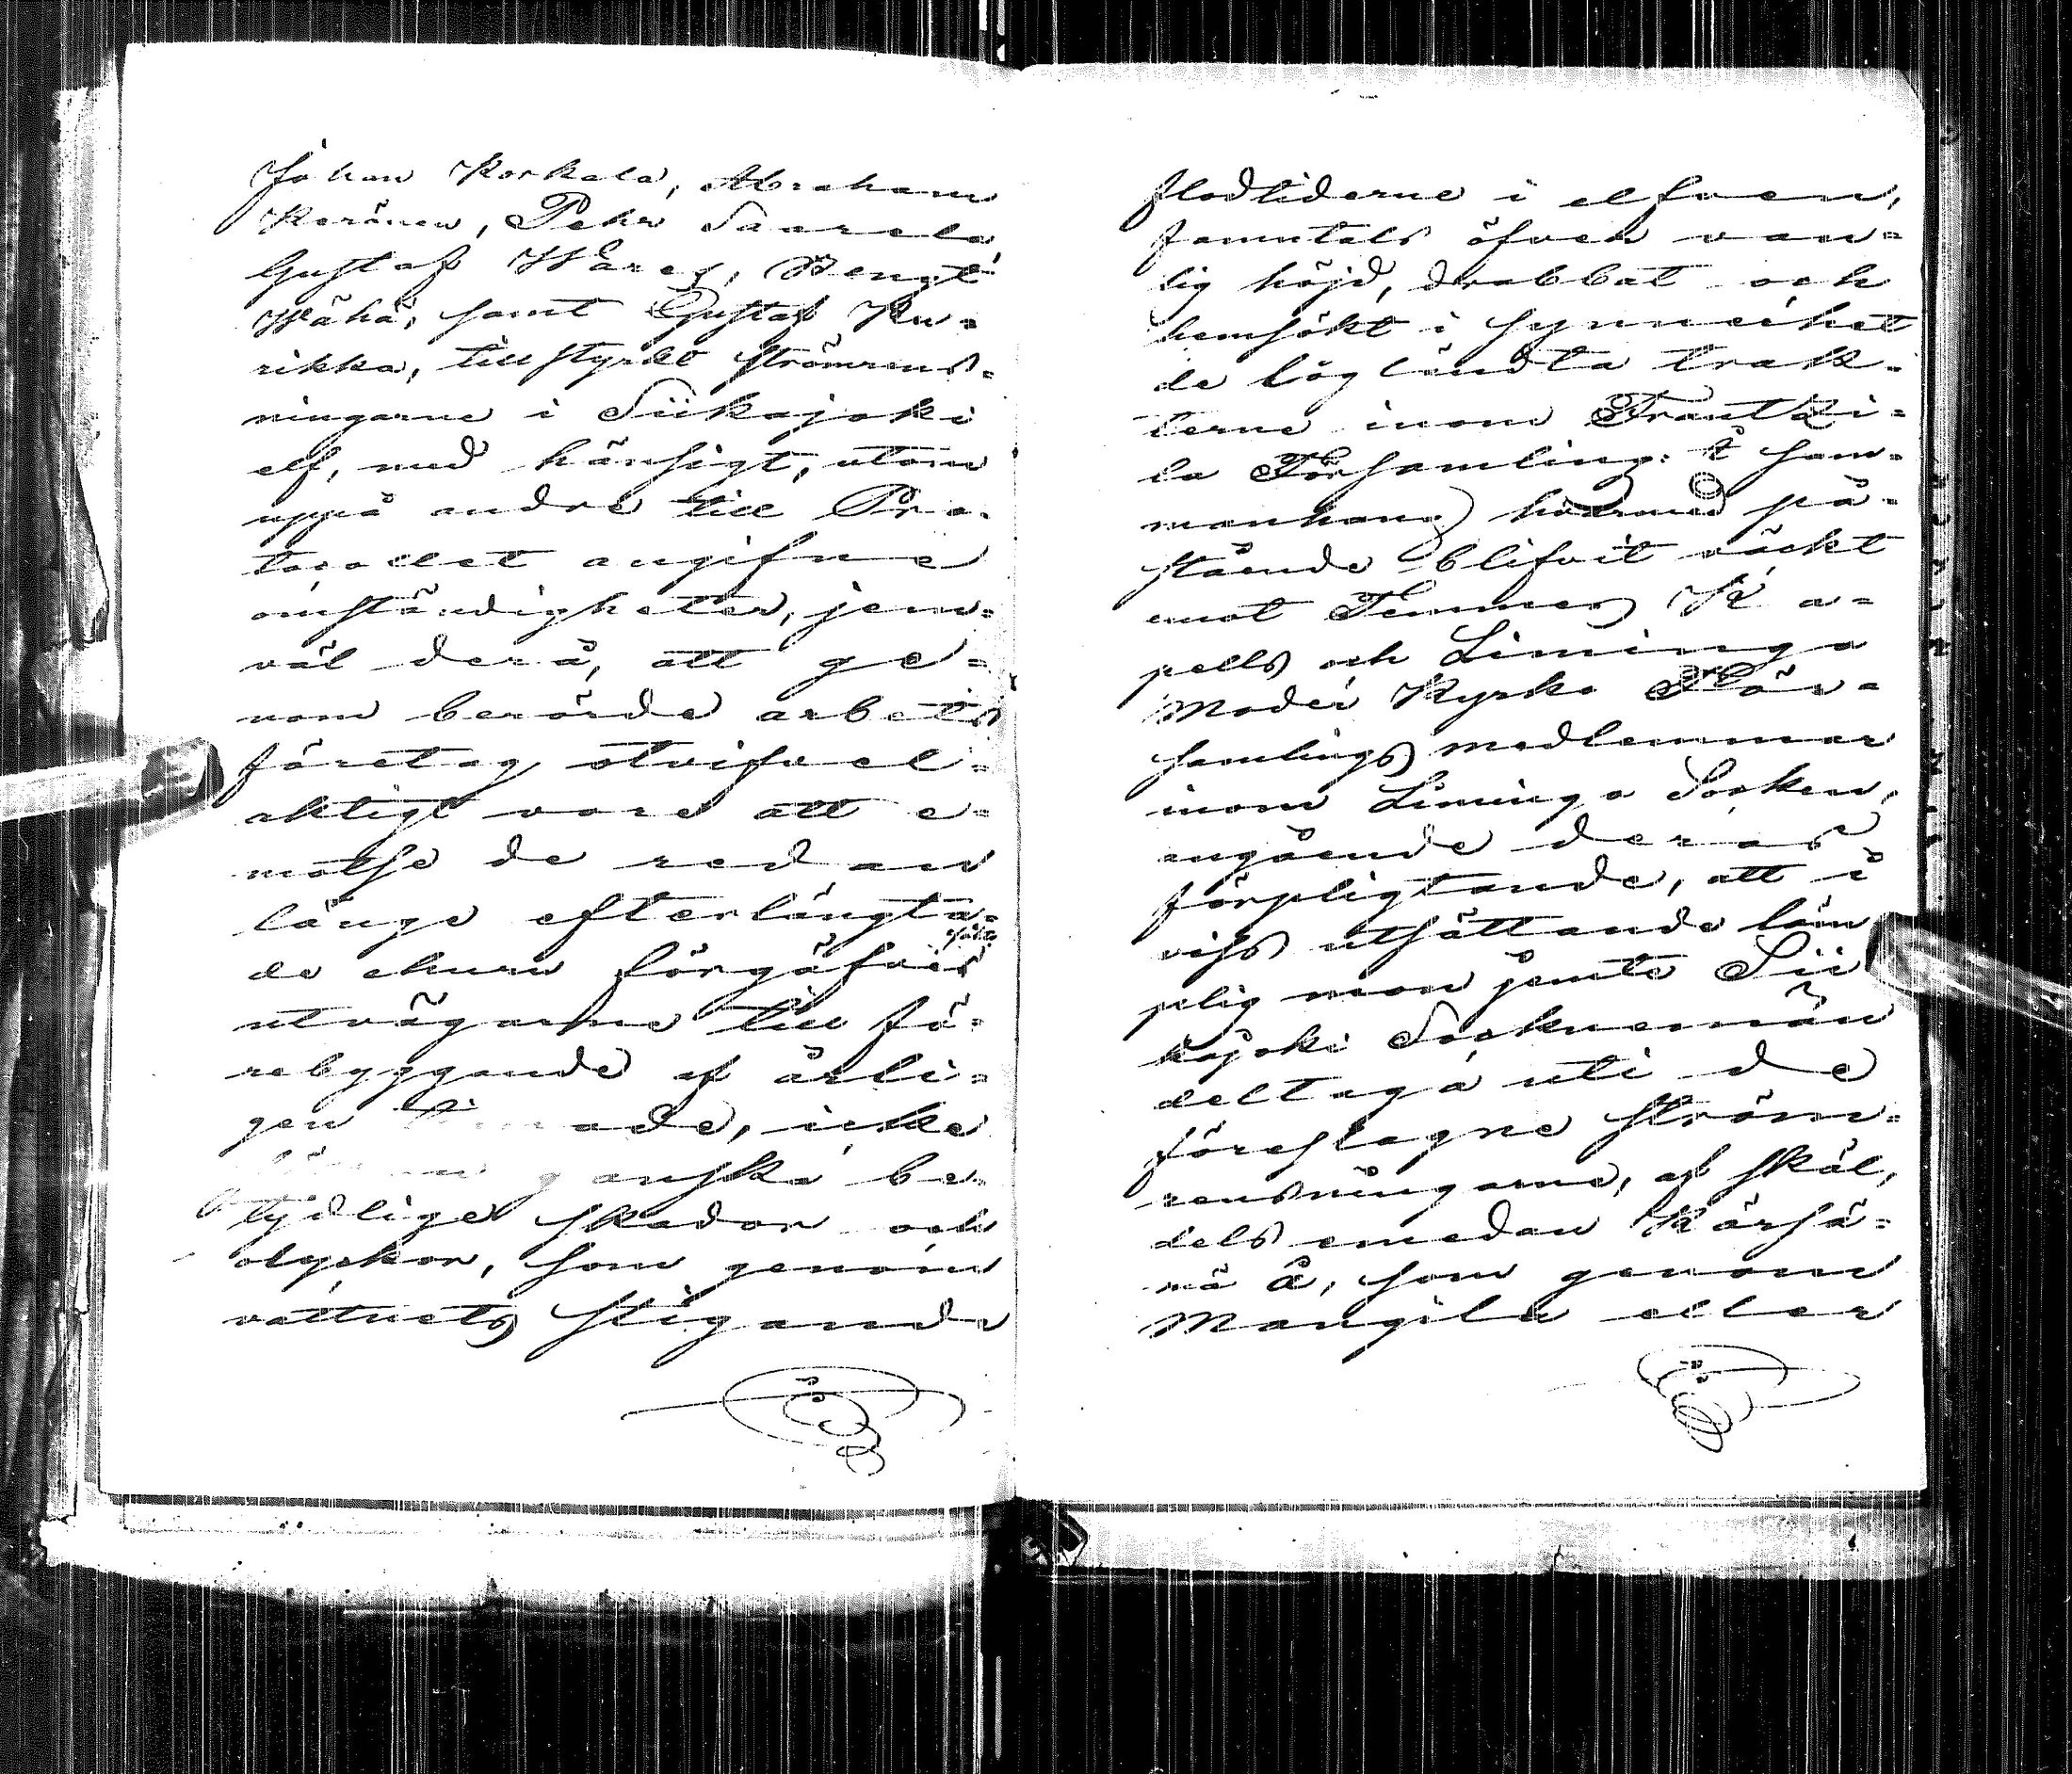 Johan Korkala, Abraham
Keränen, Pehr Saarela,
Gustaf Wares, Bengt
Wähä, samt Gustaf Ku=
rikka, tillstyrkt strömrens=
ningarne i Siikajoki
elf, med hänsigt, utom
uppå andre till Pro=
tocollet angifne
omständigheter, jem=
väl derå, att ge=
nom berörde arbets
företag otvifvel=
aktigt vore att e=
motse de redan
länge efterlängta=
de ehuru förgäfves sökta
utvägarne till fö=
rebyggande af årli=
gen ade, icke
ganska be=
tydlige skador och
olyckor, som genom
vattnets stigande
flodtiderne i elfven,
famntals öfver van=
lig höjd, drabbat och
hemsökt i synnerhet
de lågländta trak=
terne inom Frantzi=
la Församling: i sam=
manhang hvarmed på=
stående blifvit väckt
emot Temmes Ka=
pells och Limingo
Moder Kyrko För=
samlings medlemmar
inom Limingo Socken,
angående deras
förpligtande, att i
viss utsättande läm
plig mon jemte Sii
kajoki Socknemän
deltaga uti de
föreslagne ström=
rensningarne, af skäl,
dels emedan Kärsä=
mä å, som genom
Mangila eller